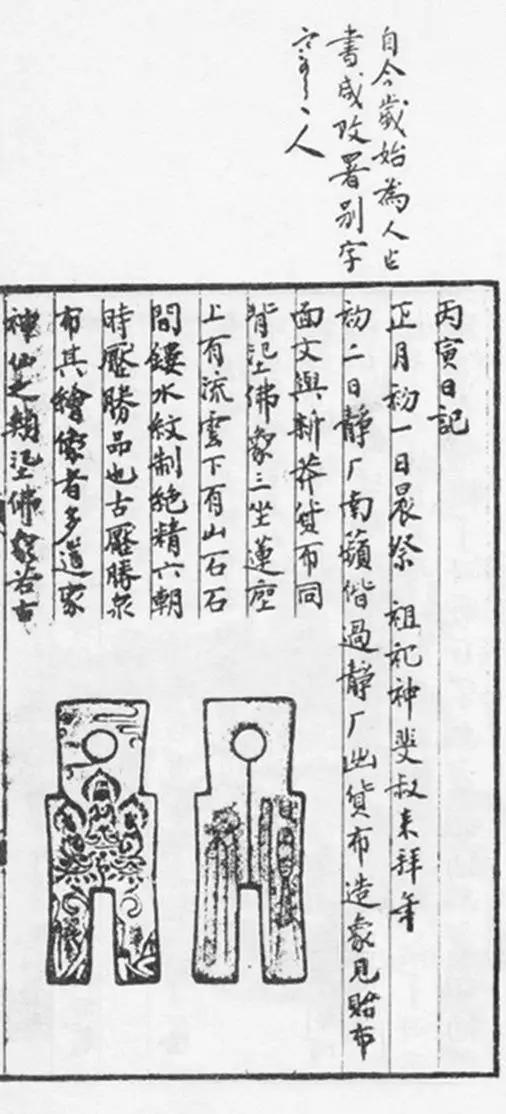 自今歲始為人
書咸改署別字
人
丙寅日記
正月初一日晨祭 祖祀神斐叔來拜年
初二日靜厂南蘋偕過靜厂出貨布造象見貽布
面文與新莽貨布同
背佛象三坐蓮座
上有流雲下有山石石
間鏤水紋制絕精六朝
時壓勝品也古壓勝泉
布其繪象者多道家
神仙之類佛象若古